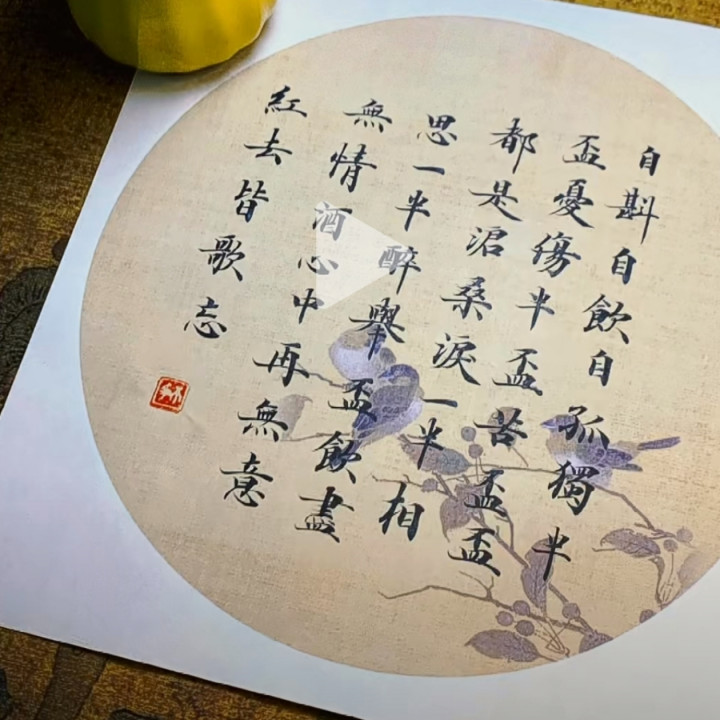 自斟自飲自孤獨半
盃憂傷半盃苦盃盃
都是滄桑淚一半相
思一半醉舉盃飲盡
無情酒心中再無意
紅去皆歌忘